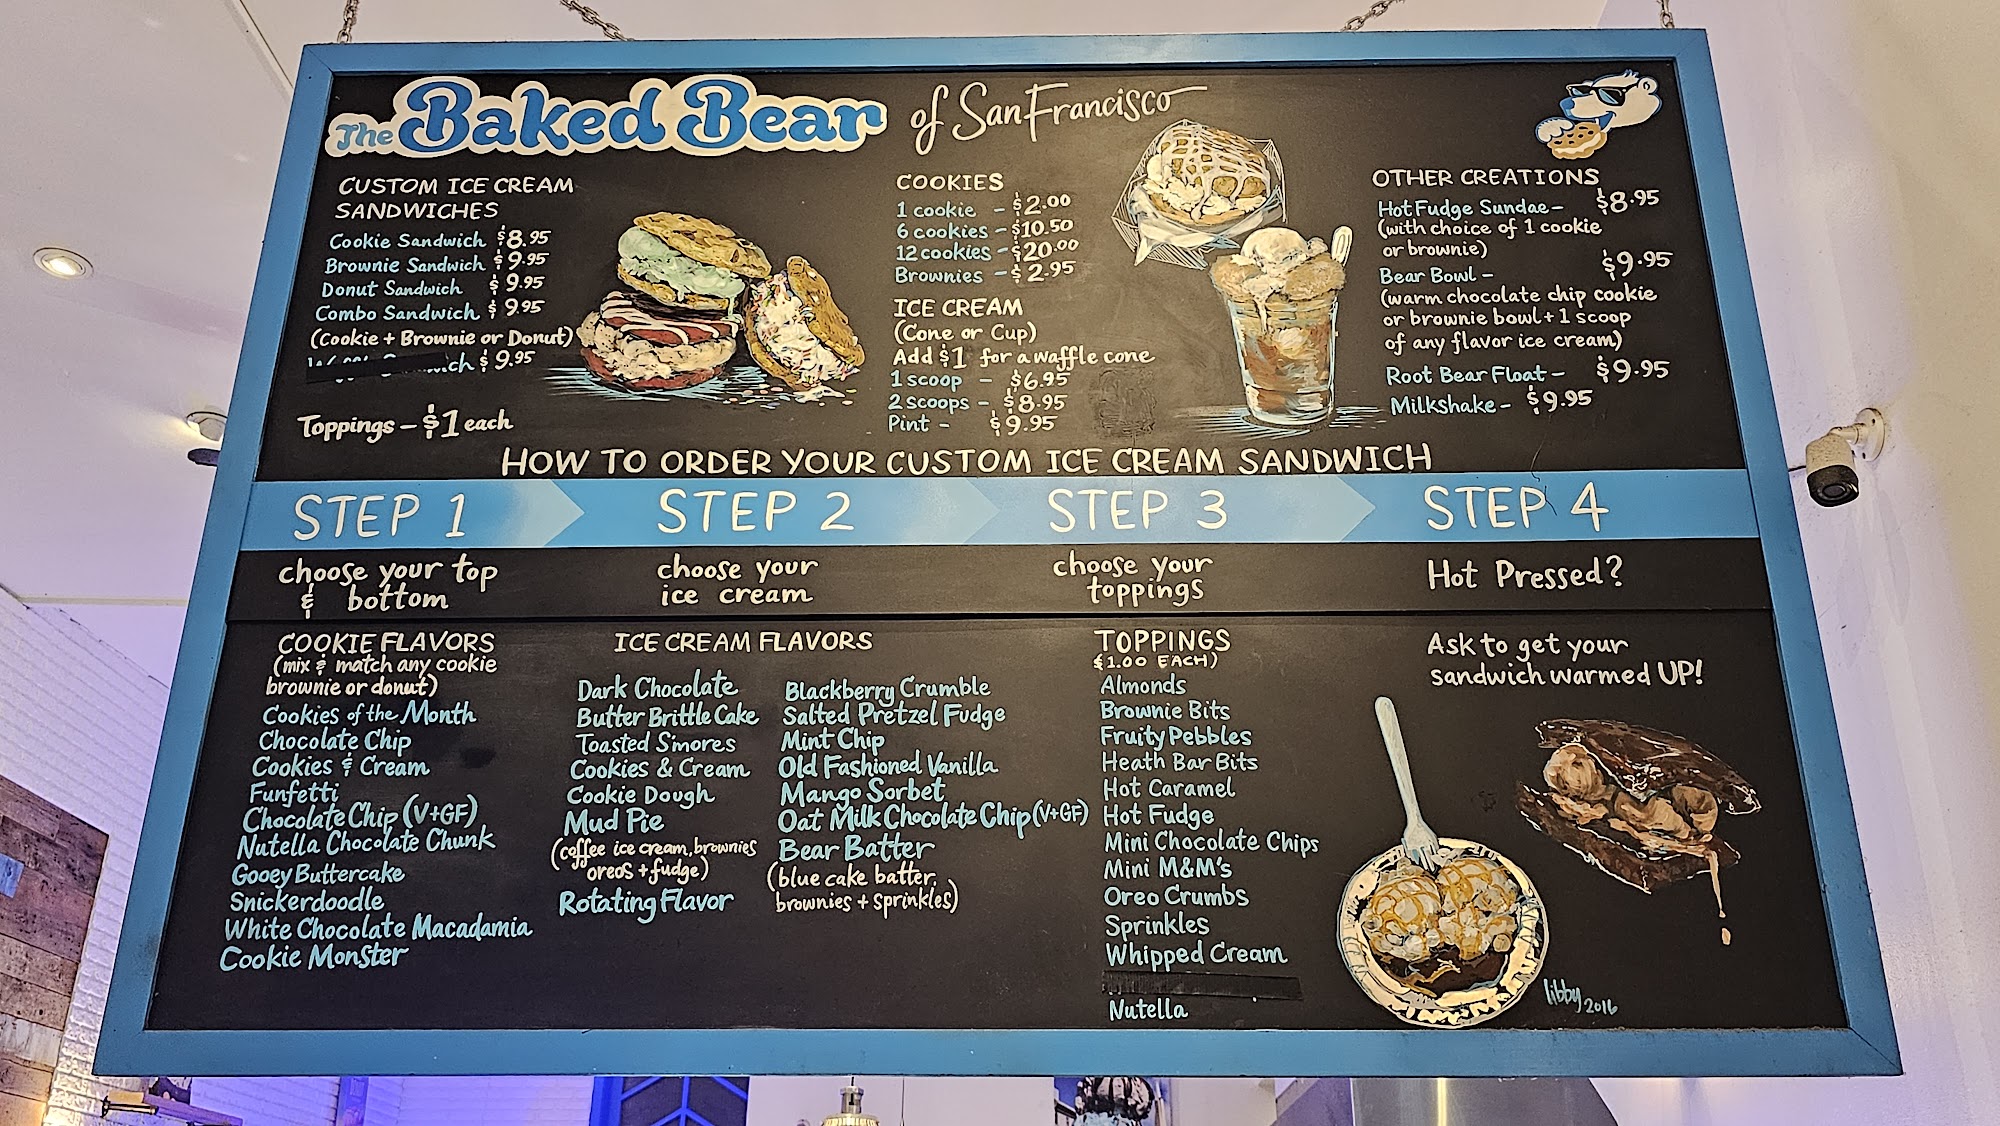 The Baked Bear of San Francisco
CUSTOM ICE CREAM
SANDWICHES
Cookie Sandwich $8.95
Brownie Sandwich $9.95
Donut Sandwich $9.95
Combo Sandwich $9.95
(Cookie + Brownie or Donut)
$9.95
Toppings - $1 each
COOKIES
1 cookie - $2.00
6 cookies - $10.50
12 cookies - $20.00
Brownies - $2.95
ICE CREAM
(Cone or Cup)
Add $1 for a waffle cone
1 scoop - $6.95
2 scoops - $8.95
Pint - $9.95
OTHER CREATIONS
Hot Fudge Sundae - $8.95
(with choice of 1 cookie
or brownie)
Bear Bowl - $9.95
(warm chocolate chip cookie
or brownie bowl + 1 scoop
of any flavor ice cream)
Root Bear Float - $9.95
Milkshake - $9.95
HOW TO ORDER YOUR CUSTOM ICE CREAM SANDWICH
STEP 1
choose your top
& bottom
COOKIE FLAVORS
(mix & match any cookie
brownie or donut)
Cookies of the Month
Chocolate Chip
Cookies & Cream
Funfetti
Chocolate Chip (V+GF)
Nutella Chocolate Chunk
Gooey Buttercake
Snickerdoodle
White Chocolate Macadamia
Cookie Monster
STEP 2
choose your
ice cream
ICE CREAM FLAVORS
Dark Chocolate
Butter Brittle Cake
Toasted S'mores
Cookies & Cream
Cookie Dough
Mud Pie
(coffee ice cream, brownies
oreos + fudge)
Rotating Flavor
Blackberry Crumble
Salted Pretzel Fudge
Mint Chip
Old Fashioned Vanilla
Mango Sorbet
Oat Milk Chocolate Chip (V+GF)
Bear Batter
(blue cake batter,
brownies + sprinkles)
STEP 3
choose your
toppings
TOPPINGS
$1.00 EACH)
Almonds
Brownie Bits
Fruity Pebbles
Heath Bar Bits
Hot Caramel
Hot Fudge
Mini Chocolate Chips
Mini M&M's
Oreo Crumbs
Sprinkles
Whipped Cream
Nutella
STEP 4
Hot Pressed?
Ask to get your
sandwich warmed UP!
libby 2016